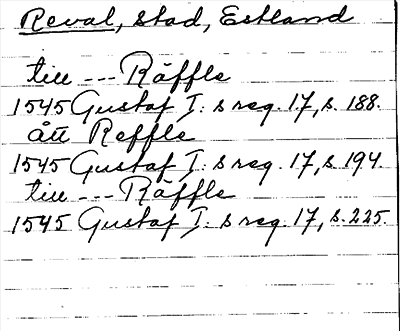 Reval, stad, Estland
till --- Räffle
1545 Gustaf I: s reg. 17, s. 188.
ått Reffle
1545 Gustaf I: s reg. 17, s. 194.
till --- Räffle
1545 Gustaf I: s reg. 17, s. 225.